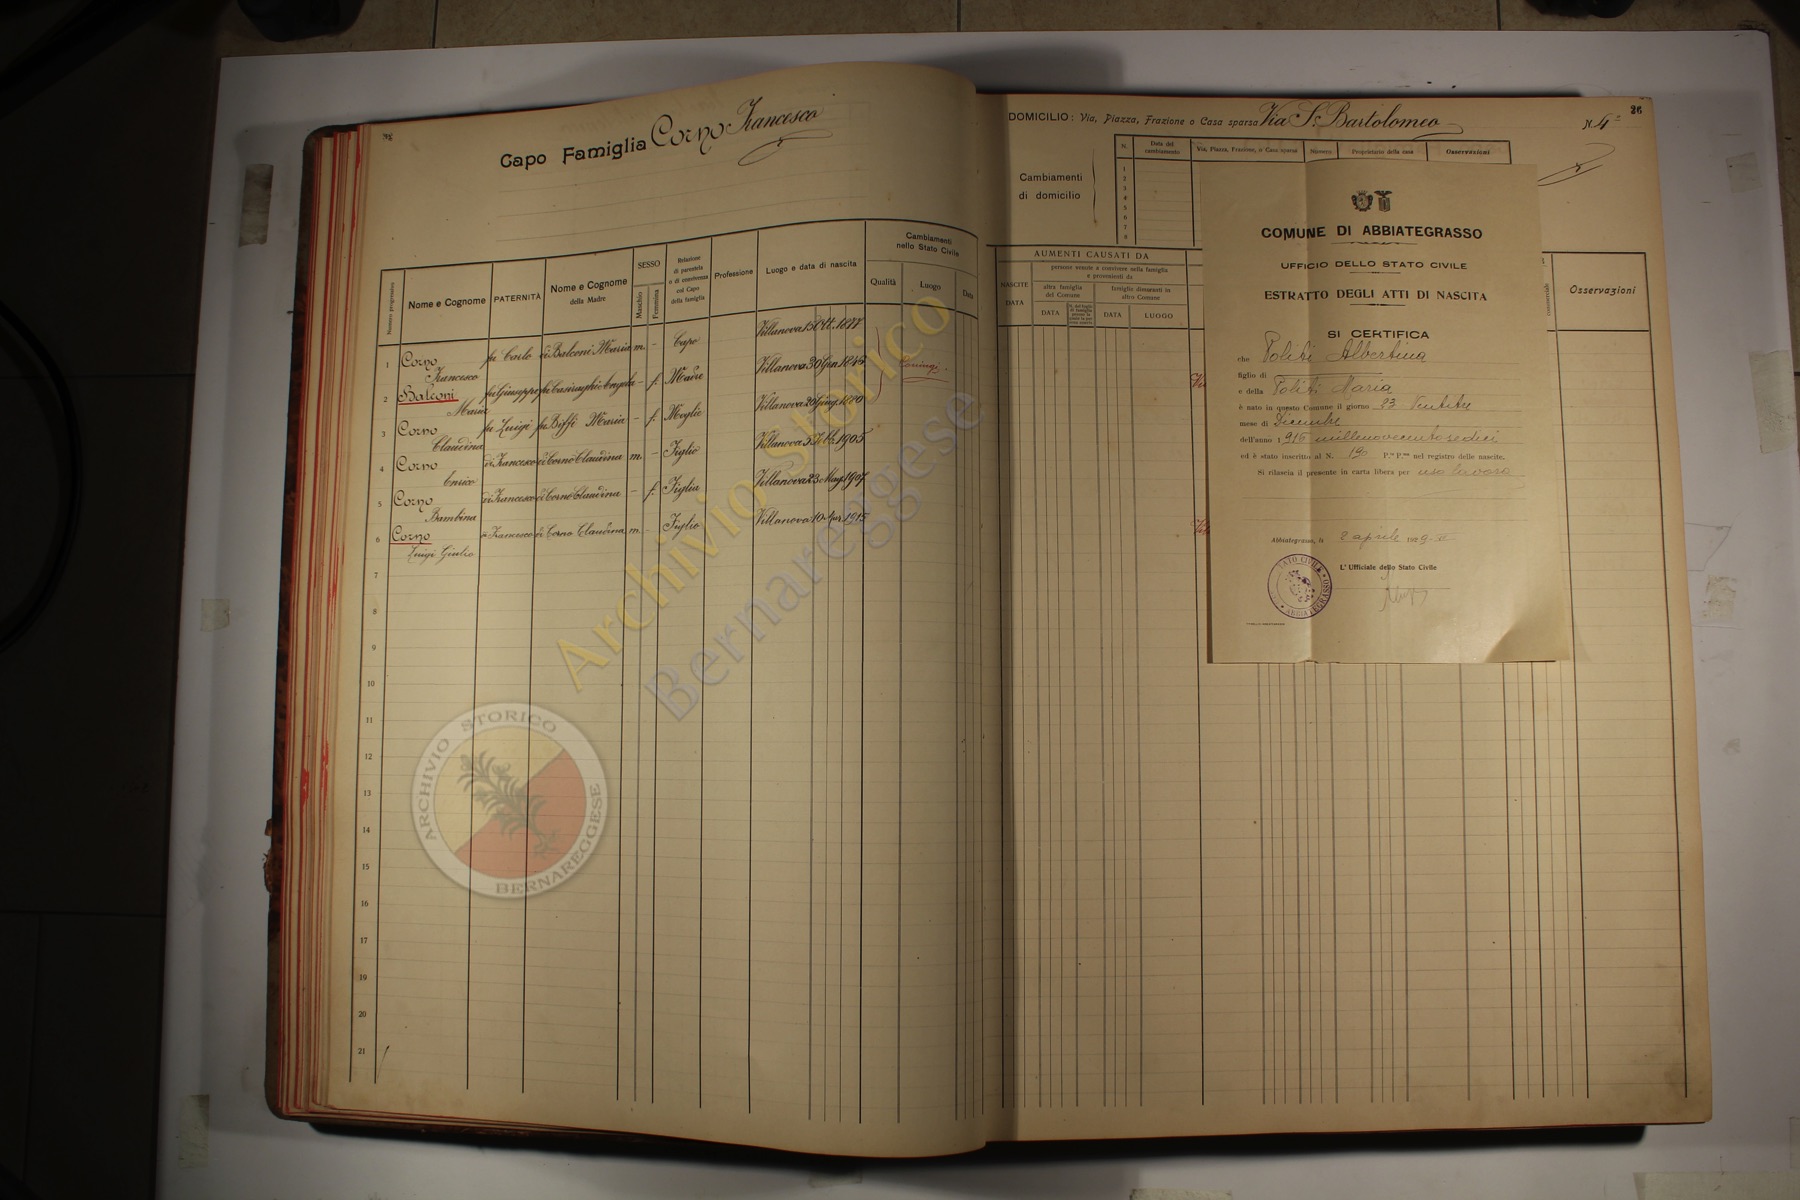 Capo Famiglia Corno Francesco
Numero progressivo
Nome e Cognome
PATERNITÀ
Nome e Cognome
della Madre
SESSO
Maschio
Femmina
Relazione
di parentela
o di convivenza
col Capo
della famiglia
Professione
Luogo e data di nascita
Cambiamenti
nello Stato Civile
Qualità
Luogo
Data
1 Corno Francesco fu Carlo di Balconi Maria m. - Capo Villanova 15 Ott. 1877
2 Balconi Maria fu Giuseppe fu Casiraghi Angela - f. Madre Villanova 30 Gen. 1845
Coniugi.
3 Corno Claudina fu Luigi fu Biffi Maria - f. Moglie Villanova 26 Giug. 1880
4 Corno Enrico di Francesco di Corno Claudina m. - Figlio Villanova 5 Feb. 1905
5 Corno Bambina di Francesco di Corno Claudina - f. Figlia Villanova 23 Mag. 1907
6 Corno Luigi Giulio di Francesco di Corno Claudina m. - Figlio Villanova 10 Apr. 1915
7
8
9
10
11
12
13
14
15
16
17
18
19
20
21
26
DOMICILIO: Via, Piazza, Frazione o Casa sparsa Via S. Bartolomeo N. 4
Cambiamenti
di domicilio
N.
Data del
cambiamento
Via, Piazza, Frazione, o Casa sparsa
Numero
Proprietario della casa
Osservazioni
1
2
3
4
5
6
7
8
AUMENTI CAUSATI DA
NASCITE
DATA
persone venute a convivere nella famiglia
e provenienti da
altra famiglia
del Comune
famiglie dimoranti in
altro Comune
DATA
DATA
LUOGO
Osservazioni
COMUNE DI ABBIATEGRASSO
UFFICIO DELLO STATO CIVILE
ESTRATTO DEGLI ATTI DI NASCITA
SI CERTIFICA
che Politi Albertina
figlio di
e della Politi Maria
è nato in questo Comune il giorno 23 Ventitre
mese di Dicembre
dell'anno 1916 millenovecentosedici
ed è stato inscritto al N. 190 P.ª P.ma nel registro delle nascite.
Si rilascia il presente in carta libera per uso lavoro
Abbiategrasso, li 2 aprile 1929
L'Ufficiale dello Stato Civile
STATO CIVILE
ABBIATEGRASSO
Archivio Storico
Bernareggese
ARCHIVIO STORICO
BERNAREGGESE